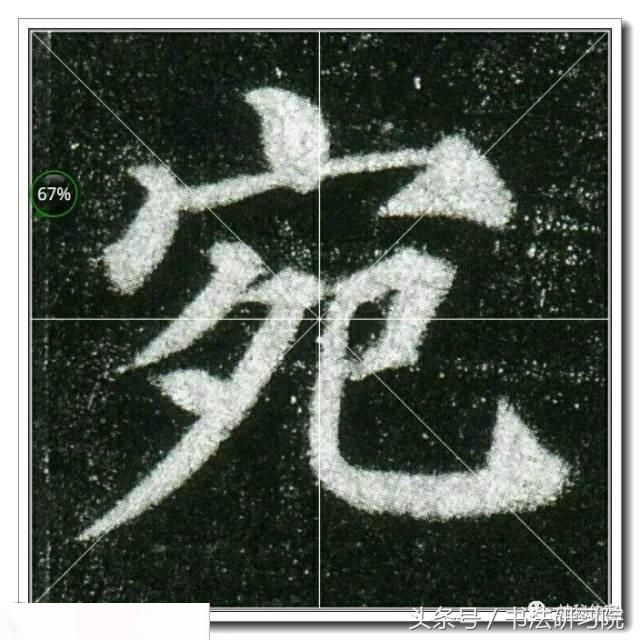 宛
67%
头条号 / 书法研习院